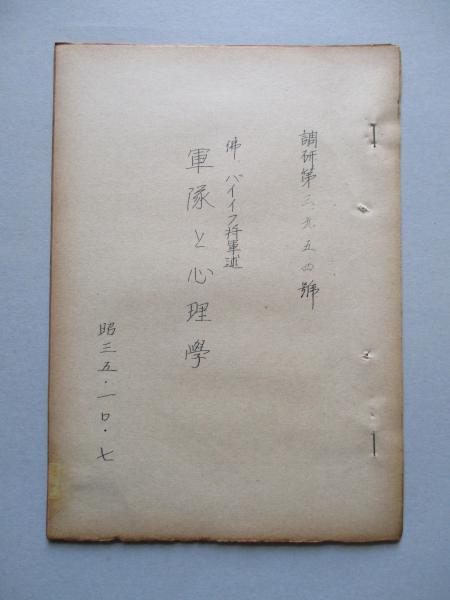 調研第三九五四號
佛、バイイフ将軍述
軍隊と心理學
昭三五・一〇・七